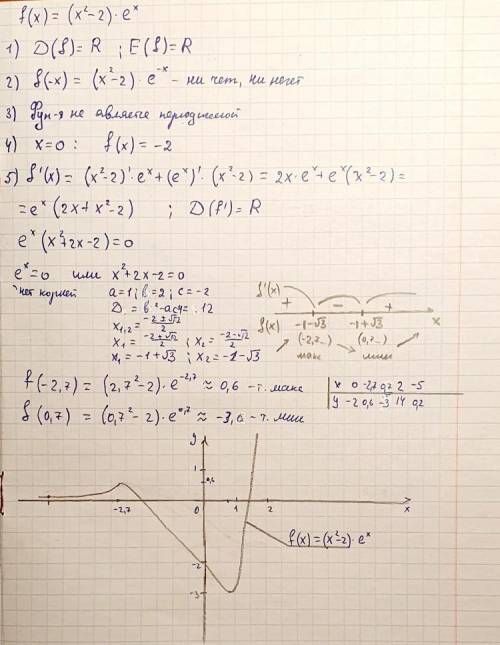 f(x) = (x²-2)·eˣ
1) D(f) = R ; E(f) = R
2) f(-x) = (x²-2)·e⁻ˣ - ни чет, ни нечет
3) Фун-я не является периодической
4) x=0 : f(x) = -2
5) f'(x) = (x²-2)'·eˣ+(eˣ)'·(x²-2) = 2x·eˣ+eˣ(x²-2) =
= eˣ(2x+x²-2) ; D(f') = R
eˣ(x²+2x-2)=0
eˣ=0 или x²+2x-2=0
нет корней a=1; b=2; c=-2
D = b²-ac4 = 12
x₁,₂ = (-2±√12)/2
x₁ = (-2+√12)/2 ; x₂ = (-2-√12)/2
x₁ = -1+√3 ; x₂ = -1-√3
f'(x) + - +
f(x) -1-√3 -1+√3 x
(-2,7..) (0,7..)
макс мин
f(-2,7) = (2,7²-2)·e⁻²,⁷ ≈ 0,6 - т. макс
f(0,7) = (0,7²-2)·e⁰,⁷ ≈ -3,0 - т. мин
x 0 -2,7 0,7 2 -5
y -2 0,6 -3 14 0,2
y
1
0,6
-2,7 0 1 2 x
-2
-3
f(x)=(x²-2)·eˣ